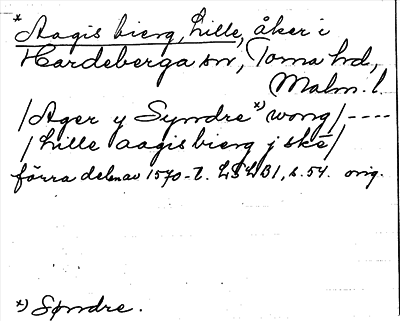 * Aagis bierg, Lille, åker i
Hardeberga sn, Torna hd,
Malm. l.
/Ager y Syndre *) wong/----
/Lille aagis bierg j ske/
förra delen av 1570-t. LSLB1, s. 54. orig.
*) Søndre.